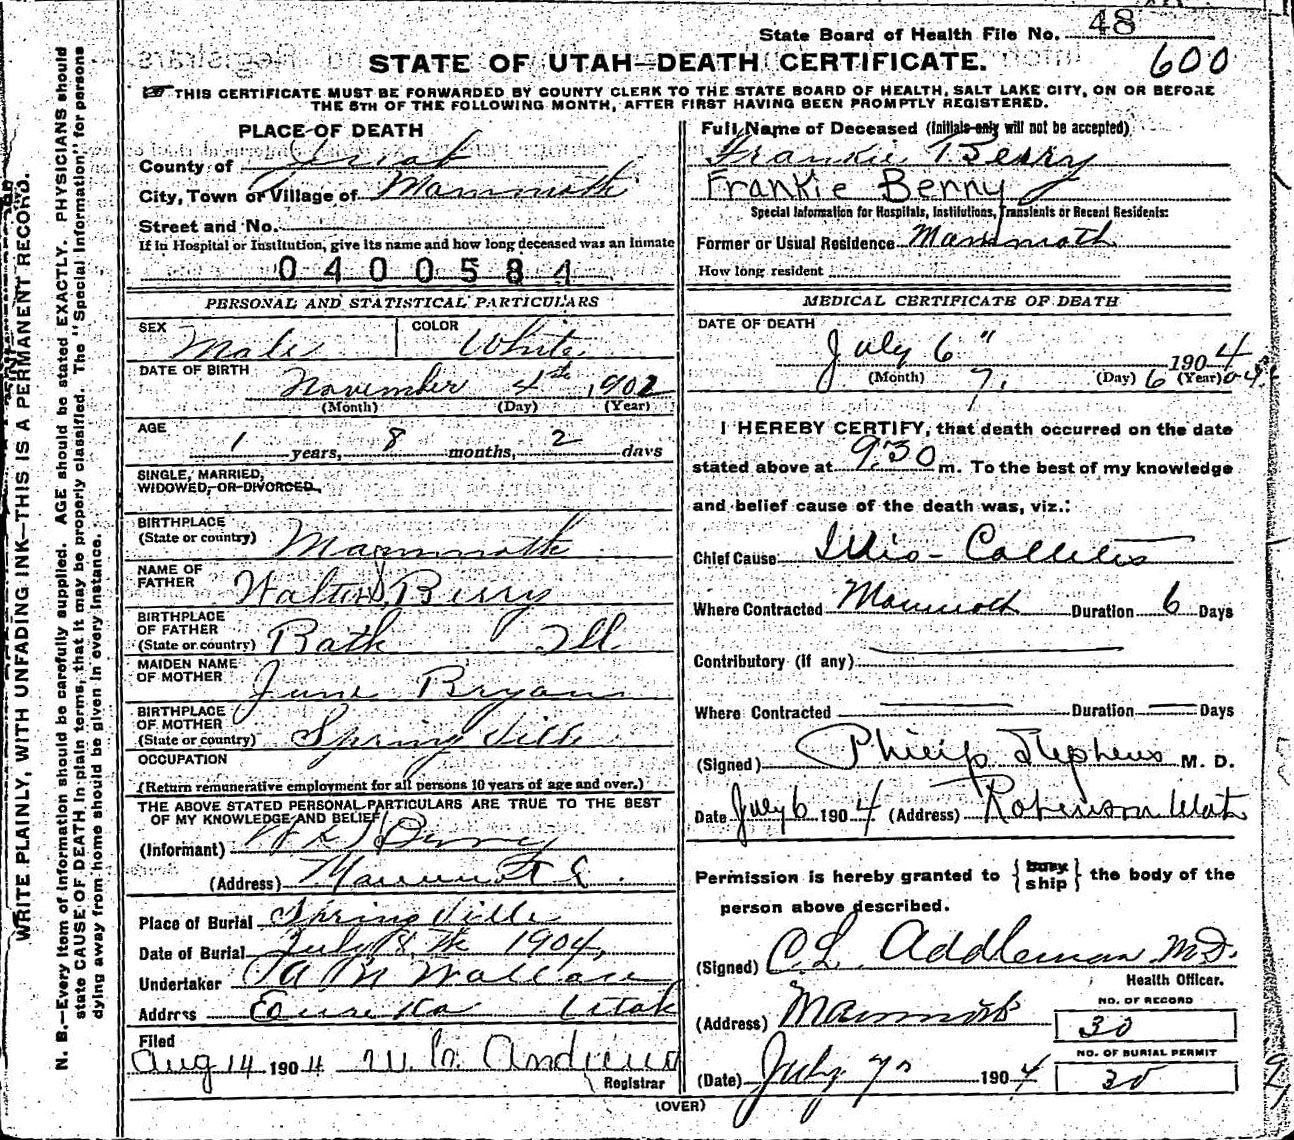 State Board of Health File No. 48
STATE OF UTAH—DEATH CERTIFICATE.
600
THIS CERTIFICATE MUST BE FORWARDED BY COUNTY CLERK TO THE STATE BOARD OF HEALTH, SALT LAKE CITY, ON OR BEFORE
THE 5TH OF THE FOLLOWING MONTH, AFTER FIRST HAVING BEEN PROMPTLY REGISTERED.
WRITE PLAINLY, WITH UNFADING INK—THIS IS A PERMANENT RECORD.
N. B.—Every item of information should be carefully supplied. AGE should be stated EXACTLY. PHYSICIANS should
state CAUSE OF DEATH in plain terms, that it may be properly classified. The "Special Information" for persons
dying away from home should be given in every instance.
PLACE OF DEATH
County of Juab
City, Town or Village of Mammoth
Street and No.
If in Hospital or Institution, give its name and how long deceased was an inmate
0400584
PERSONAL AND STATISTICAL PARTICULARS
SEX Male COLOR White
DATE OF BIRTH November 4th 1902
(Month) (Day) (Year)
AGE 1 years, 8 months, 2 days
SINGLE, MARRIED,
WIDOWED, OR DIVORCED
BIRTHPLACE
(State or country) Mammoth
NAME OF
FATHER Walter Berry
BIRTHPLACE
OF FATHER
(State or country) Bath Ill
MAIDEN NAME
OF MOTHER June Bryan
BIRTHPLACE
OF MOTHER
(State or country) Spring Ville
OCCUPATION
(Return remunerative employment for all persons 10 years of age and over.)
THE ABOVE STATED PERSONAL PARTICULARS ARE TRUE TO THE BEST
OF MY KNOWLEDGE AND BELIEF
(Informant) Berry
(Address) Mammoth
Place of Burial Spring Ville
Date of Burial July 8 th 1904
Undertaker A M Wallace
Address Eureka Utah
Filed
Aug 14 1904
Registrar
Full Name of Deceased (Initials only will not be accepted)
Frankie Berry
Frankie Benny
Special Information for Hospitals, Institutions, Transients or Recent Residents:
Former or Usual Residence Mammoth
How long resident
MEDICAL CERTIFICATE OF DEATH
DATE OF DEATH
July 6" 1904
(Month) 7. (Day) 6 (Year) 04
I HEREBY CERTIFY, that death occurred on the date
stated above at 9.30 m. To the best of my knowledge
and belief cause of the death was, viz.:
Chief Cause Illio-Collitis
Where Contracted Mammoth Duration 6 Days
Contributory (If any)
Where Contracted Duration Days
(Signed) Philip Stephens M. D.
Date July 6 1904 (Address) Robinson Utah
Permission is hereby granted to {bury ship} the body of the
person above described.
(Signed) C. L. Addleman M.D.
Health Officer.
(Address) Mammoth
NO. OF RECORD
30
NO. OF BURIAL PERMIT
30
(Date) July 7 1904
(OVER)